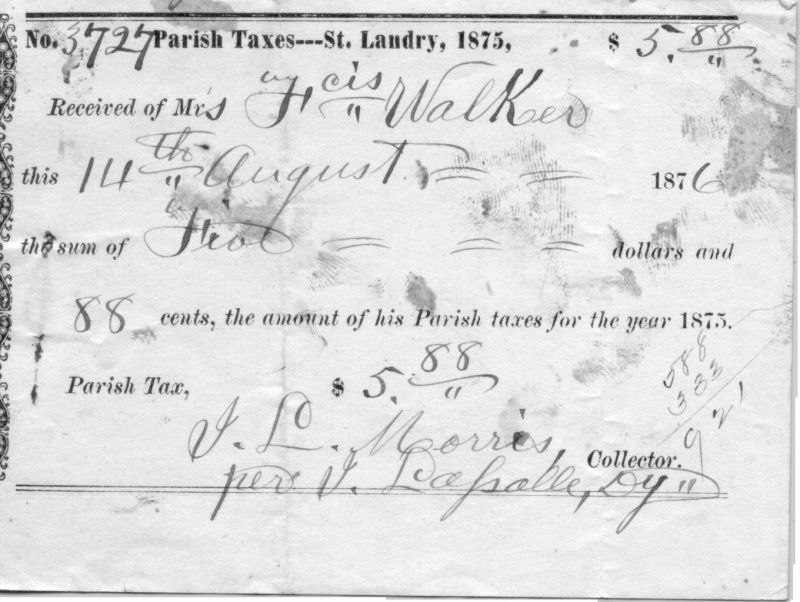 No. 3727 Parish Taxes---St. Landry, 1875, $ 5. 88/"
Received of Mrs Fcis Walker
this 14th August 1876
the sum of Five dollars and
88 cents, the amount of his Parish taxes for the year 1875.
Parish Tax, $ 5. 88/"
588
333
9 21
J. L. Morris,
Collector.
per J. Lassalle, Dy